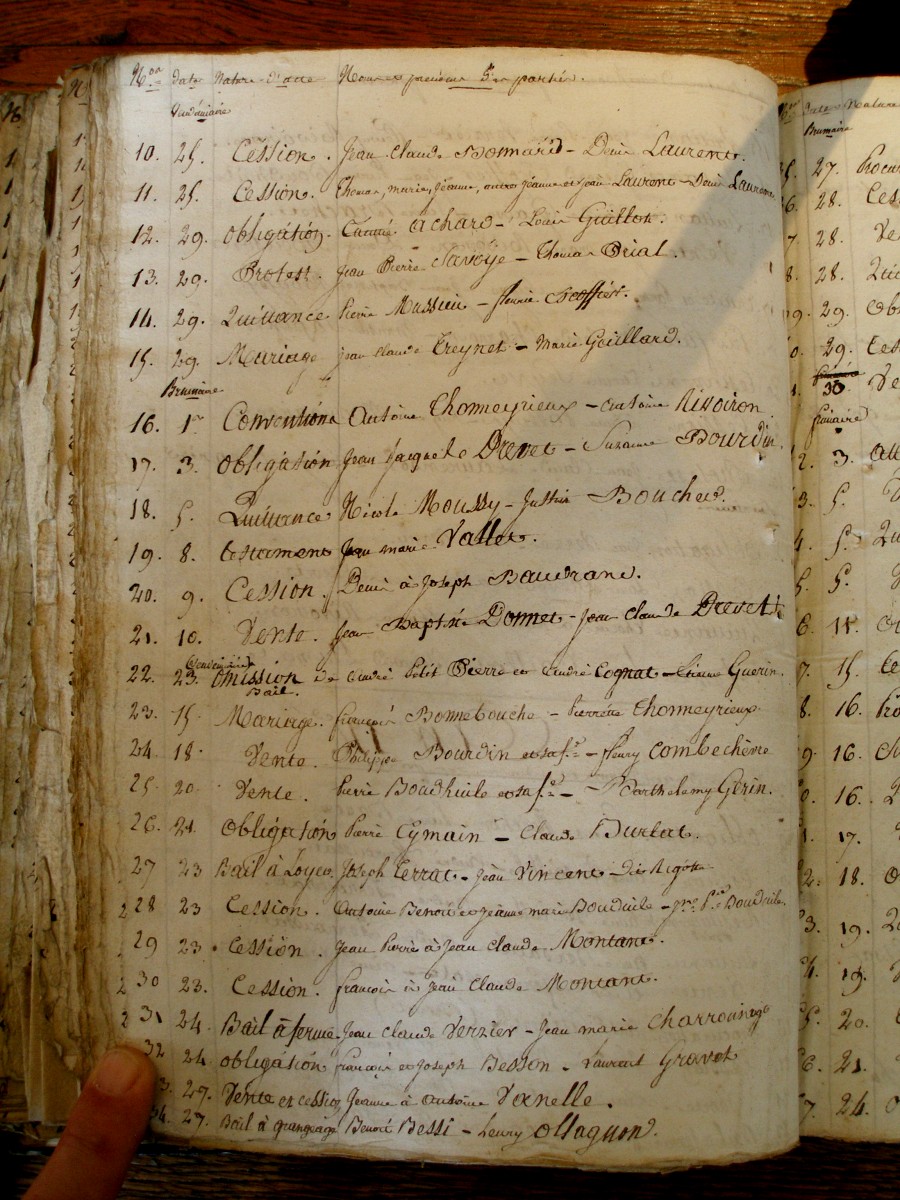 Nos Date Nature d'acte Noms et prénoms des parties.
Vendémiaire
10. 25. Cession. Jean Claude Bonnard - Denis Laurent.
11. 25. Cession. Thomas, marie, jeanne, autre jeanne et jean Laurent - Denis Laurent
12. 29. Obligation. achard - Louis Guillot.
13. 29. Protest. Jean Pierre Savoÿe - Thomas Drial.
14. 29. Quittance Pierre Mussieu - fleurie
15. 29. Mariage jean claude Treynet - Marie Goillard.
Brumaire
16. 1er Convention Antoine Thonneyrieux - antoine Rivoiron
17. 3. Obligation Jean Jacque Drevet - Suzanne Bourdin.
18. 5. Quittance Nicole Moussy - Justin Bouchud.
19. 8. testament Jean marie Vallet.
20. 9. Cession. Denis à Joseph Baudrand.
21. 10. Vente. jean Baptiste Donnet - jean Claude Drevet
22. 23. Omission de andré Petit Pierre et andré Cognat - Etienne Guerin.
Bail.
23. 15. Mariage. françois Bonnebouche - Pierrette Thonneyrieux
24 18. Vente. Philippe Bourdin et sa fe - fleury Combechève
25. 20. Vente. Pierre Boudhuile et sa fe - Barthelemy Gerin.
26. 21. Obligation Pierre Eymain - Claude Burlat.
27 23 Bail à Loyer Joseph Terrat - Jean Vincent - Rigot
28 23 Cession. Antoine Benoit et jeanne marie Bouduile - Bouduile.
29 23. Cession. Jean Pierre à Jean Claude Montant.
30 23. Cession. françois à Jean Claude Montant.
31 24. Bail à ferme Jean Claude Verzier - Jean marie Charrouinage
32 24 obligation françois et Joseph Besson - Laurent Gravot
3. 27. Vente et cession Jeanne à antoine Vanelle.
34. 27. Bail à grangeage Benoit Bessi - Leury Ollagnon.
Date Nature
Brumaire
27. Procur
28. Ces
28. Ve
28. Qui
29. Ob
29. Ces
30. Ve
frimaire
3. All
5.
5. Qu
5.
11.
15. Ce
16. Pro
16.
16.
17.
18. O
19.
19.
20.
21.
24. O